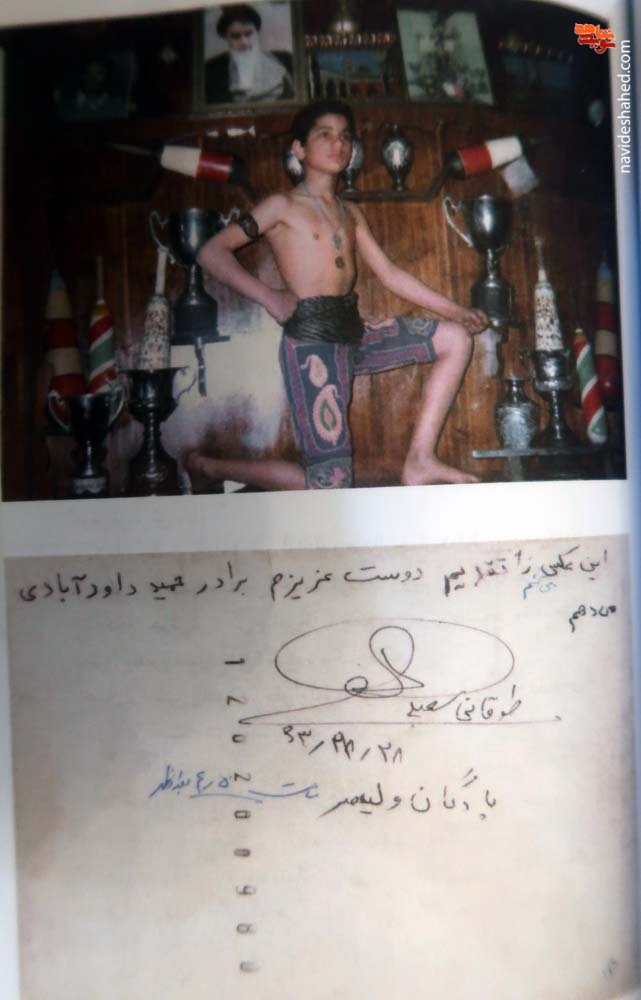 navideshahed.com
این عکس را تقدیم دوست عزیزم برادر حمید داودآبادی
می‌کنم
می دهم
طوقانی سعید
۶۳/۲۸
پادگان ولیعصر ساعت ۴/۵ بعدازظهر
1
2
0
2
0
0
9
8
0